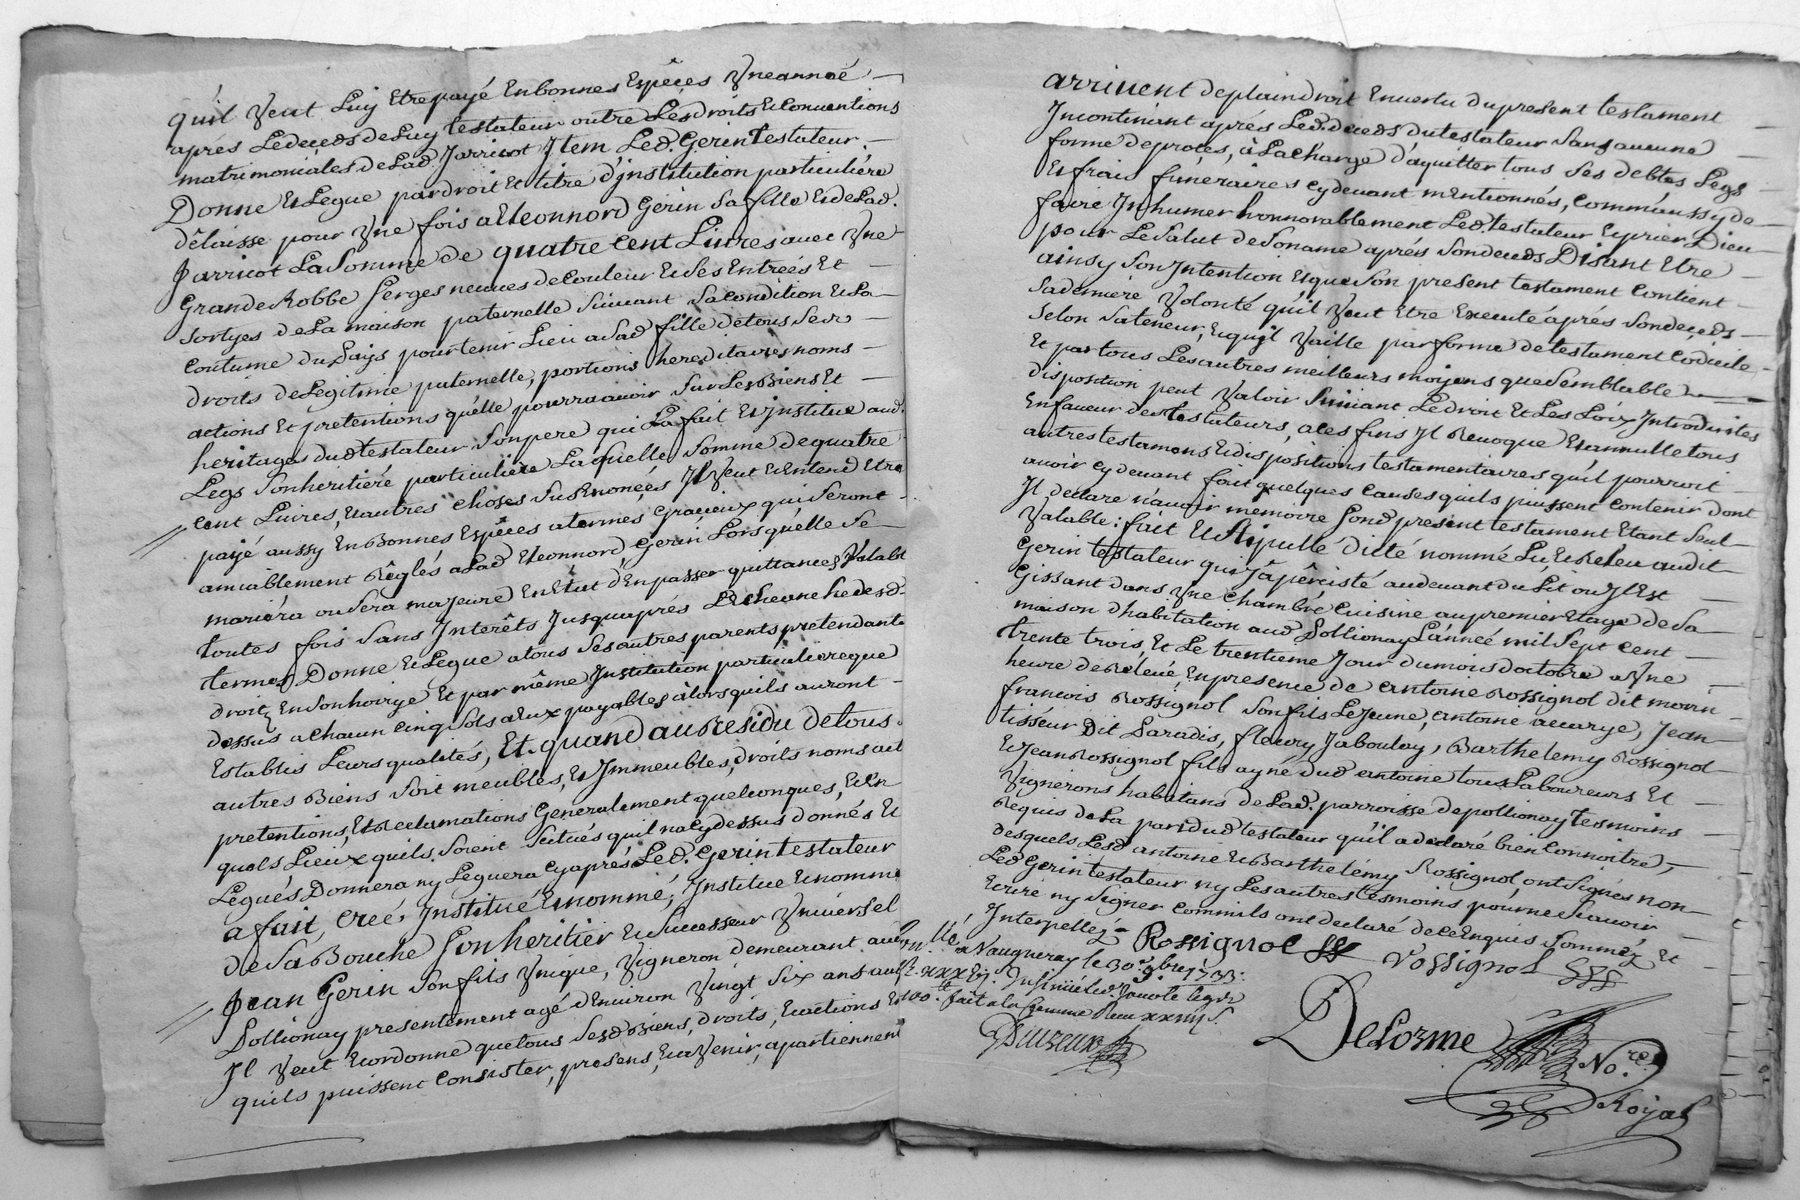 qu'il veut Luy Etre payé En bonnes Espéces Une année
aprés Le deceds de Luy testateur outre Les droits Et Conventions
matrimoniales de Lad. Jarricot Item Led. Gerin testateur
Donne Et Legue par droit Et titre d'jnstitution particuliére
délaisse pour Une fois a Eleonnord Gerin sa fille Et de Lad.
Jarricot La Somme de quatre Cent Livres avec Une
Grande Robbe Serges neuves de Couleur Et Ses Entreés Et
Sortyes de La maison paternelle Suivant Sa Condition Et La
Coutume du Pays pour tenir Lieu a Sad. fille de tous Ses
droits de Legitime paternelle, portions hereditaires, noms
actions Et pretentions qu'elle pourra avoir Sur Les Biens Et
heritages dud. testateur Son pere qui La fait Et jnstitue aud.
Legs Son heritiére particuliére Laquelle Somme de quatre
Cent Livres, Et autres choses Sus Enoncées Il Veut Et Entend Etre
payé aussy En Bonnes Espéces a termes Gracieux qui Seront
amiablement Réglés a Lad. Eleonnord Gerin Lors qu'elle Se
mariera ou Sera majeure En Etat d'En passer quittances Valabl
toutes fois Sans Interêts Jusqu'aprés L'Echeance desd.
termes, Donne Et Legue a tous Ses autres parents pretendants
droitz En Son hoirye Et par même Institution particuliere que
dessus a Chacun Cinq Sols a Eux payables alors qu'ils auront
Establis Leurs qualités, Et quand au Residu de tous
autres Biens Soit meubles, Et Immeubles, droits noms act
pretentions, Et Reclamations Generalement quelconques, Et En
quels Lieux qu'ils Soient Scitués qu'il n'a Cy dessus donnés Et
Legués Donnera ny Leguera Cy aprés Led. Gerin testateur
a fait, creé, Institué Et nommé, Institue Et nomme
de Sa Bouche Son heritier Et Successeur Universel
Jean Gerin Son fils Unique, Vigneron demeurant aud.
Pollionay presentement agé d'Environ Vingt Six ans auq.
Il Veut Et ordonne que tous Sesd. Biens, droits, Et actions En
quils puissent Consister, presens, Et a Venir, apartiennent
arrivent de plain droit En vertu du present testament
Incontinant aprés Led. deceds du testateur Sans aucune
forme de procés, à La charge d'aquitter tous Ses debtes Legs
Et frais funeraires Cy devant mentionnés, Comm'aussy de
faire Inhumer honnorablement Led. testateur Et prier Dieu
pour Le Salut de Son ame aprés Son deceds, Disant Etre
ainsy Son Intention Et que Son present testament Contient
Sa derniere Volonté qu'il Veut Etre Executé aprés Son deceds
Selon Sa teneur, Et qu'il Vaille par forme de testament Codicile
Et par tous Les autres meilleurs moyens que Semblable
disposition peut Valoir Suivant Le droit Et Les Loix Introduittes
En faveur des testateurs, a Ces fins Il Revoque Et annulle tous
autres testamens Et dispositions testamentaires qu'il pourroit
avoir Cy devant fait quelques Causes qu'ils puissent Contenir dont
Il declare n'avoir memoire Sond. present testament Etant Seul
Valable: fait Et Stipullé dicté nommé Lu, Et Releu audit
Gerin testateur qui y a pérsisté au devant du Lit ou Il Est
Gissant dans Une Chambre Cuisine au premier Etage de Sa
maison d'habitation aud. Pollionay L'anneé mil Sept Cent
trente trois, Et Le trentieme Jour du mois d'octobre a Une
heure de Relevé, En presence de Antoine Rossignol dit
francois Rossignol Son fils Le Jeune, Antoine Accarye, Jean
tisseur Dit Paradis, fleury Jaboulay, Barthelemy Rossignol
Et Jean Rossignol fils ayné dud. Antoine tous Laboureurs Et
Vignerons habitans de Lad. parroisse de pollionay tesmoins
Requis de La part dud. testateur qu'il a declaré bien Connoitre,
desquels Lesd. antoine Et Barthelémy Rossignol ont Signés non
Led. Gerin testateur ny Les autres tesmoins pour ne Sçavoir
Ecrire ny Signer Comm'ils ont declaré de Ce Enquis Sommés Et
Interpelléz
Rossignol rossignol
a Vaugneray le 30e 9bre 1733.
Delorme
No.re
Royal